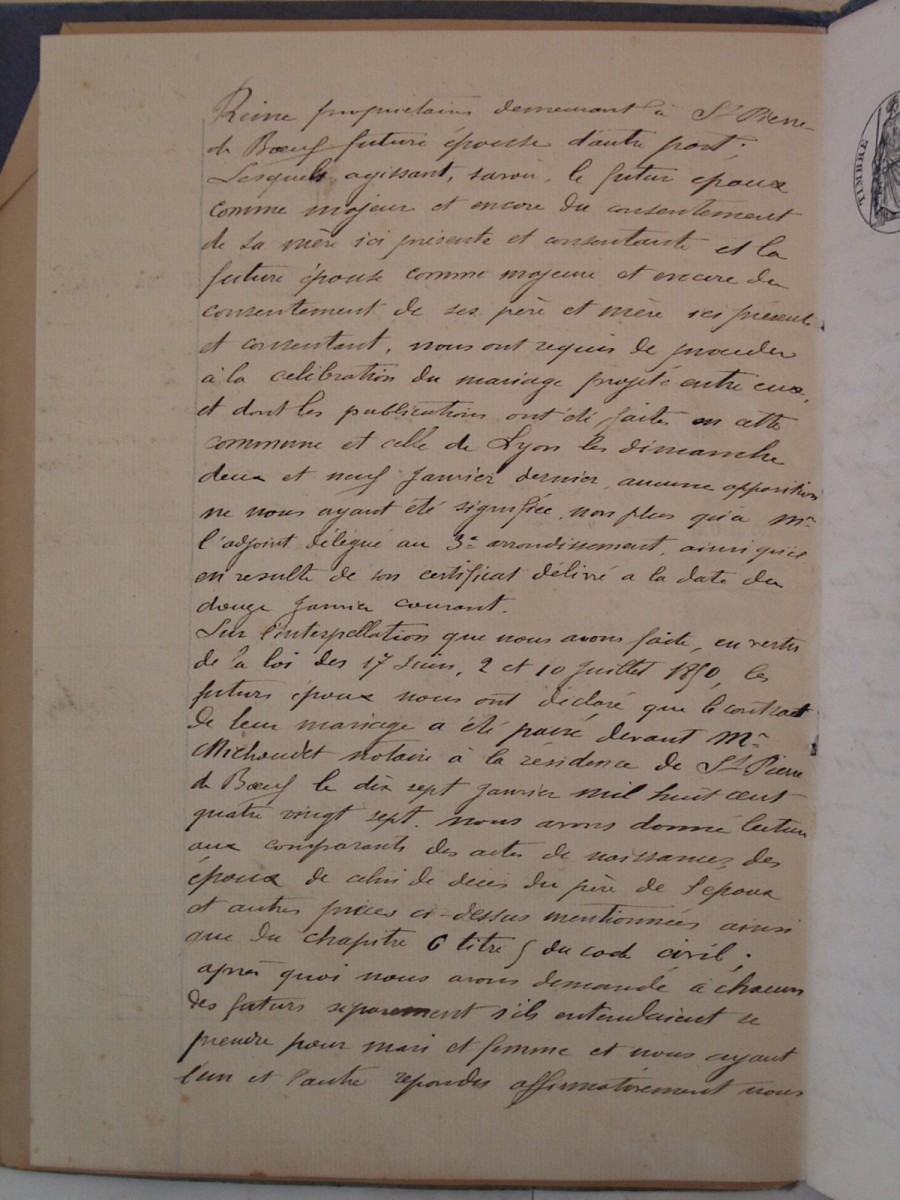 Reine propriétaires demeurant à St Pierre
de Bœuf future épouse d'autre part.
Lesquels agissant, savoir, le futur époux
comme majeur et encore du consentement
de sa mère ici présente et consentante et la
future épouse comme majeure et encore du
consentement de ses père et mère ici présents
et consentant, nous ont requis de proceder
à la celébration du mariage projeté entre eux,
et dont les publications ont été faites en cette
commune et celle de Lyon les dimanche
deux et neuf Janvier dernier, aucune opposition
ne nous ayant été signifiée, non plus qu'à Mr
l'adjoint délégué au 3e arrondissement, ainsi qu'il
en resulte de son certificat délivré a la date du
douze Janvier courant.
Sur l'interpellation que nous avons faite, en vertu
de la loi des 17 Juin, 2 et 10 Juillet 1850, les
futurs époux nous ont déclaré que le contrat
de leur mariage a été passé devant Mr
Michaudet notaire à la résidence de St Pierre
de Bœuf le dix sept Janvier mil huit cent
quatre vingt sept. nous avons donné lecture
aux comparants des actes de naissances des
époux de celui de deces du père de l'epoux
et autres pièces ci-dessus mentionnées ainsi
que du chapitre 6 titre 5 du cod civil;
après quoi nous avons demandé à chacun
des futurs séparement s'ils entendaient se
prendre pour mari et femme et nous ayant
l'un et l'autre repondu affirmativement nous
TIMBRE